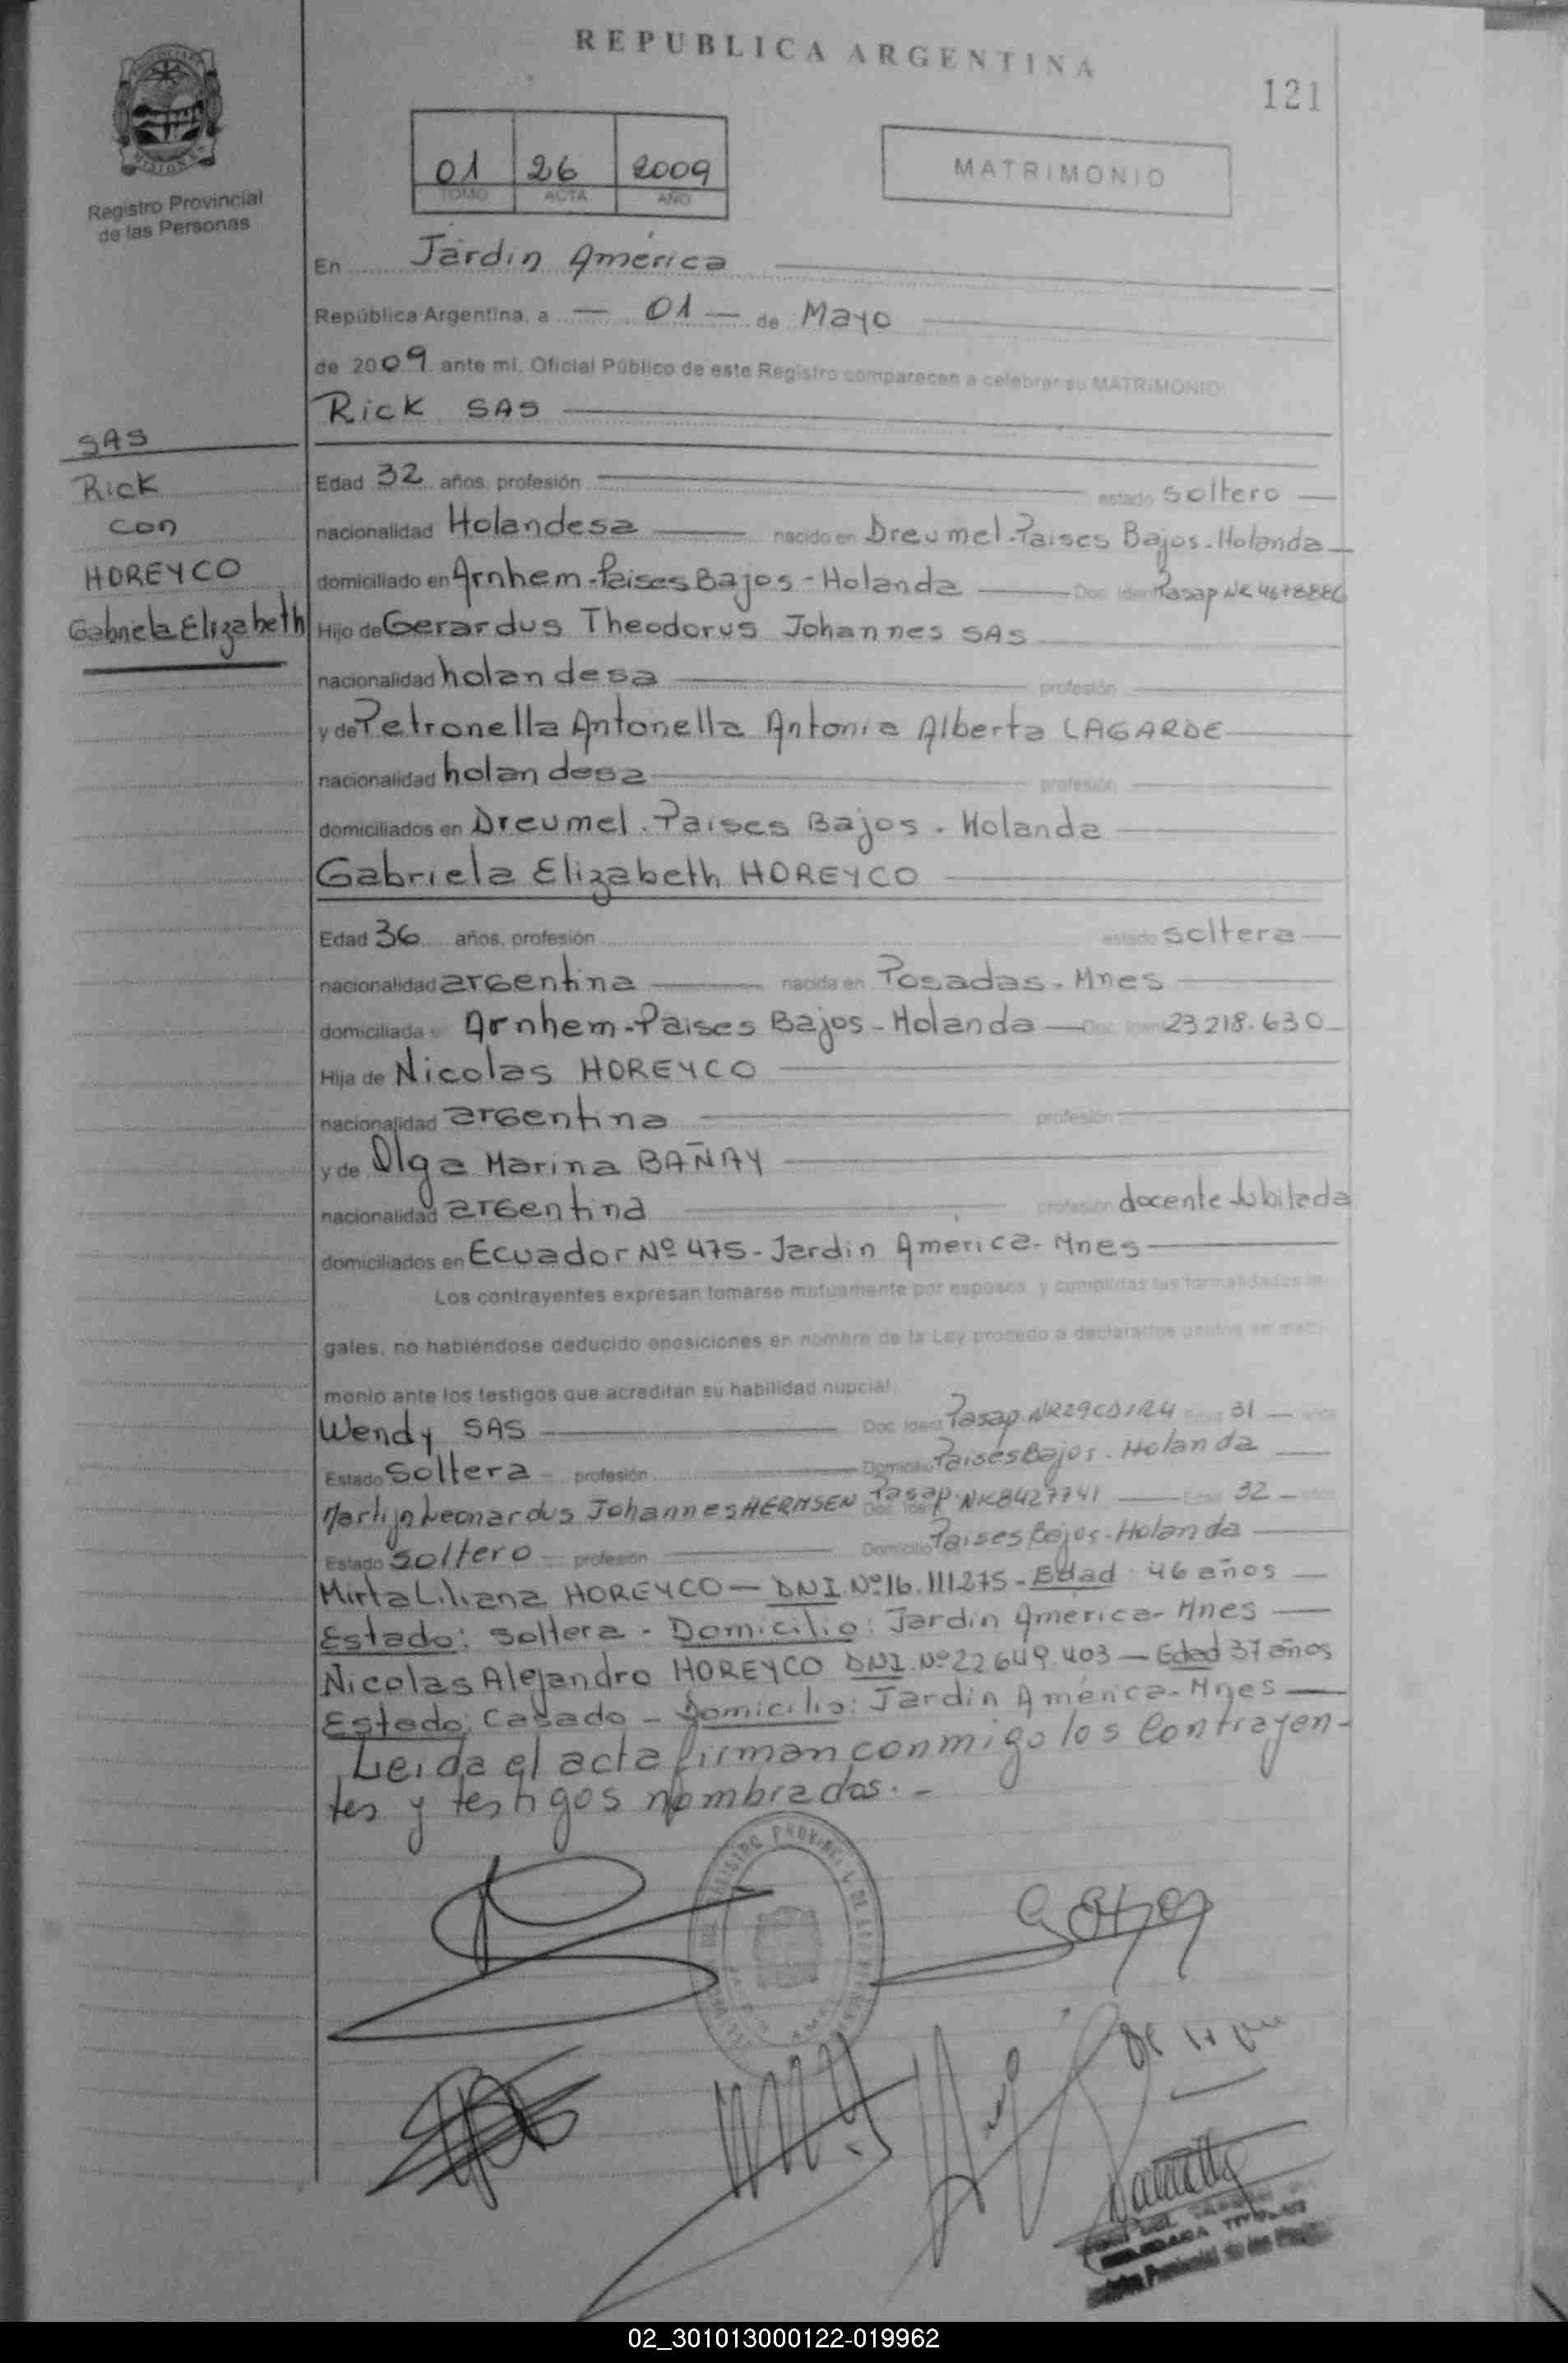 REPUBLICA ARGENTINA
121
MISIONES
Registro Provincial
de las Personas
01 26 2009
TOMO ACTA AÑO
MATRIMONIO
En Jardín América
República Argentina, a 01 de Mayo
de 2009 ante mi, Oficial Público de este Registro comparecen a celebrar su MATRIMONIO
Rick SAS
SAS
Rick
con
HOREYCO
Gabriela Elizabeth
Edad 32 años, profesión estado soltero
nacionalidad Holandesa nacido en Dreumel-Paises Bajos-Holanda
domiciliado en Arnhem-Paises Bajos-Holanda Doc. Ident Pasap NK4678886
Hijo de Gerardus Theodorus Johannes SAS
nacionalidad holandesa profesión
y de Petronella Antonella Antonia Alberta LAGARDE
nacionalidad holandesa profesión
domiciliados en Dreumel. Paises Bajos - Holanda
Gabriela Elizabeth HOREYCO
Edad 36 años, profesión estado soltera
nacionalidad argentina nacida en Posadas-Mnes
domiciliada en Arnhem-Paises Bajos-Holanda Doc. Ident 23218.630
Hija de Nicolas HOREYCO
nacionalidad argentina profesión
y de Olga Marina BAÑAY
nacionalidad argentina profesión docente Jubilada
domiciliados en Ecuador Nº 475-Jardin América-Mnes
Los contrayentes expresan tomarse mutuamente por esposos, y cumplidas las formalidades le-
gales, no habiéndose deducido oposiciones en nombre de la Ley procedo a declararlos unidos en matri-
monio ante los testigos que acreditan su habilidad nupcial.
Wendy SAS Doc. Ident Pasap. NR29CD1R4 Edad 31 años
Estado soltera profesión Domicilio Paises Bajos-Holanda
Martijn Leonardus Johannes HERMSEN Doc. Ident Pasap. NK8427741 Edad 32 años
Estado soltero profesión Domicilio Paises Bajos-Holanda
Mirta Liliana HOREYCO - DNI.Nº16.111275-Edad 46 años
Estado: soltera - Domicilio: Jardin América-Mnes
Nicolas Alejandro HOREYCO DNI.Nº22649.403-Edad 37 años
Estado: Casado - Domicilio: Jardin América-Mnes
Leida el acta firman conmigo los contrayen-
tes y testigos nombrados.-
02_301013000122-019962